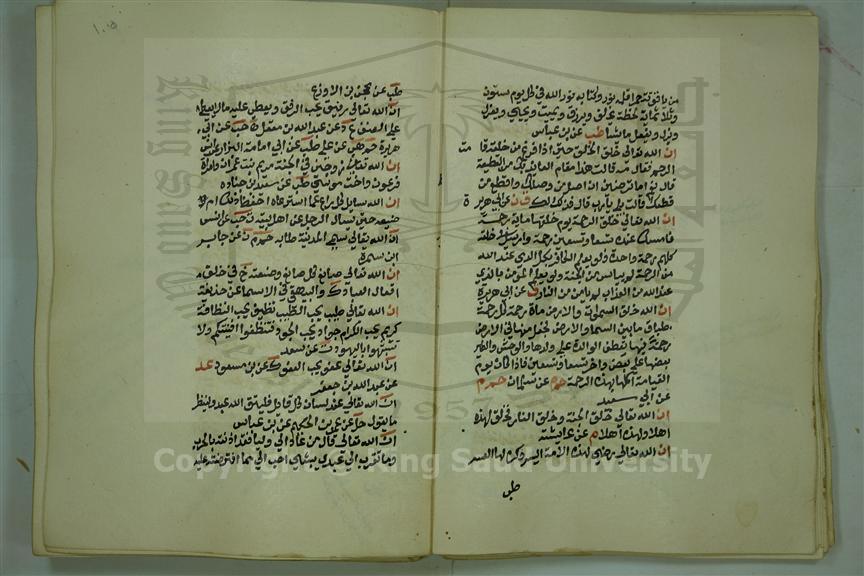 من ياقوتة حمرا قلمه نور وكتابه نور الله فيه كل يوم ستون
وثلاثمائة لحظة يخلق ويرزق ويميت ويحيي ويعز
ويذل ويفعل ما يشا طب عن بن عباس
ان الله تعالى خلق الخلق حتى اذا فرغ من خلقه قامت
الرحم فقال مه قالت هذا مقام العائذ بك من القطيعة
قال نعم اما ترضين ان اصل من وصلك واقطع من
قطعك قالت بلى يارب قال فذلك لك ق ن عن ابي هريرة
ان الله تعالى خلق الرحمة يوم خلقها ماية رحمة
فامسك عنده تسعا وتسعين رحمة وارسل في خلقه
كلهم رحمة واحدة فلو يعلم الكافر بكل الذي عند الله
من الرحمة لم ييأس من الجنة ولو يعلم المومن بالذي
عند الله من العذاب لم يامن من النار ق عن ابي هريرة
ان الله تعالى خلق يوم خلق السموات والارض ماة رحمة كل رحمة
طباق ما بين السما والارض فجعل منها في الارض
رحمة فبها تعطف الوالدة على ولدها والوحش والطير
بعضها على بعض واخر تسعا وتسعين فاذا كان يوم
القيامة اكملها بهذه الرحمة حم م عن سلمان حم م
عن ابي سعيد
ان الله تعالى خلق الجنة وخلق النار فخلق لهذه
اهلا ولهذه اهلا م عن عايشة
ان الله تعالى رضي لهذه الامة اليسر وكره لها العسر
طب
١٠٥
طب عن محجن بن الادرع
ان الله تعالى رفيق يحب الرفق ويعطي عليه ما لا يعطي
على العنف خد د عن عبد الله بن مغفل ه حب عن ابي
هريرة حم هب عن علي طب عن ابي امامة البزار عن انس
ان الله تعالى زوجني في الجنة مريم بنت عمران وامراة
فرعون واخت موسى طب عن سعد بن جنادة
ان الله سايل كل راع عما استرعاه احفظ ذلك ام
ضيعه حتى يسال الرجل عن اهل بيته ن حب عن انس
ان الله تعالى سمى المدينة طابه حم م ن عن جابر
ابن سمرة
ان الله تعالى صانع كل صانع وصنعته خ في خلق
افعال العباد ك والبيهقي في الاسما عن حذيفة
ان الله تعالى طيب يحب الطيب نظيف يحب النظافة
كريم يحب الكرام جواد يحب الجود فنظفوا افنيتكم ولا
تشبهوا باليهود ت عن سعد
ان الله تعالى عفو يحب العفو ك عن بن مسعود عد
عن عبد الله بن جعفر
ان الله تعالى عند لسان كل قايل فليتق الله عبد ولينظر
ما يقول حل عن بن عمر الحكيم عن بن عباس
ان الله تعالى قال من عادى لي وليا فقد اذنته بالحرب
وما تقرب الي عبدي بشي احب الي مما افترضته عليه
Copyright © King Saud University
King Saud
1957